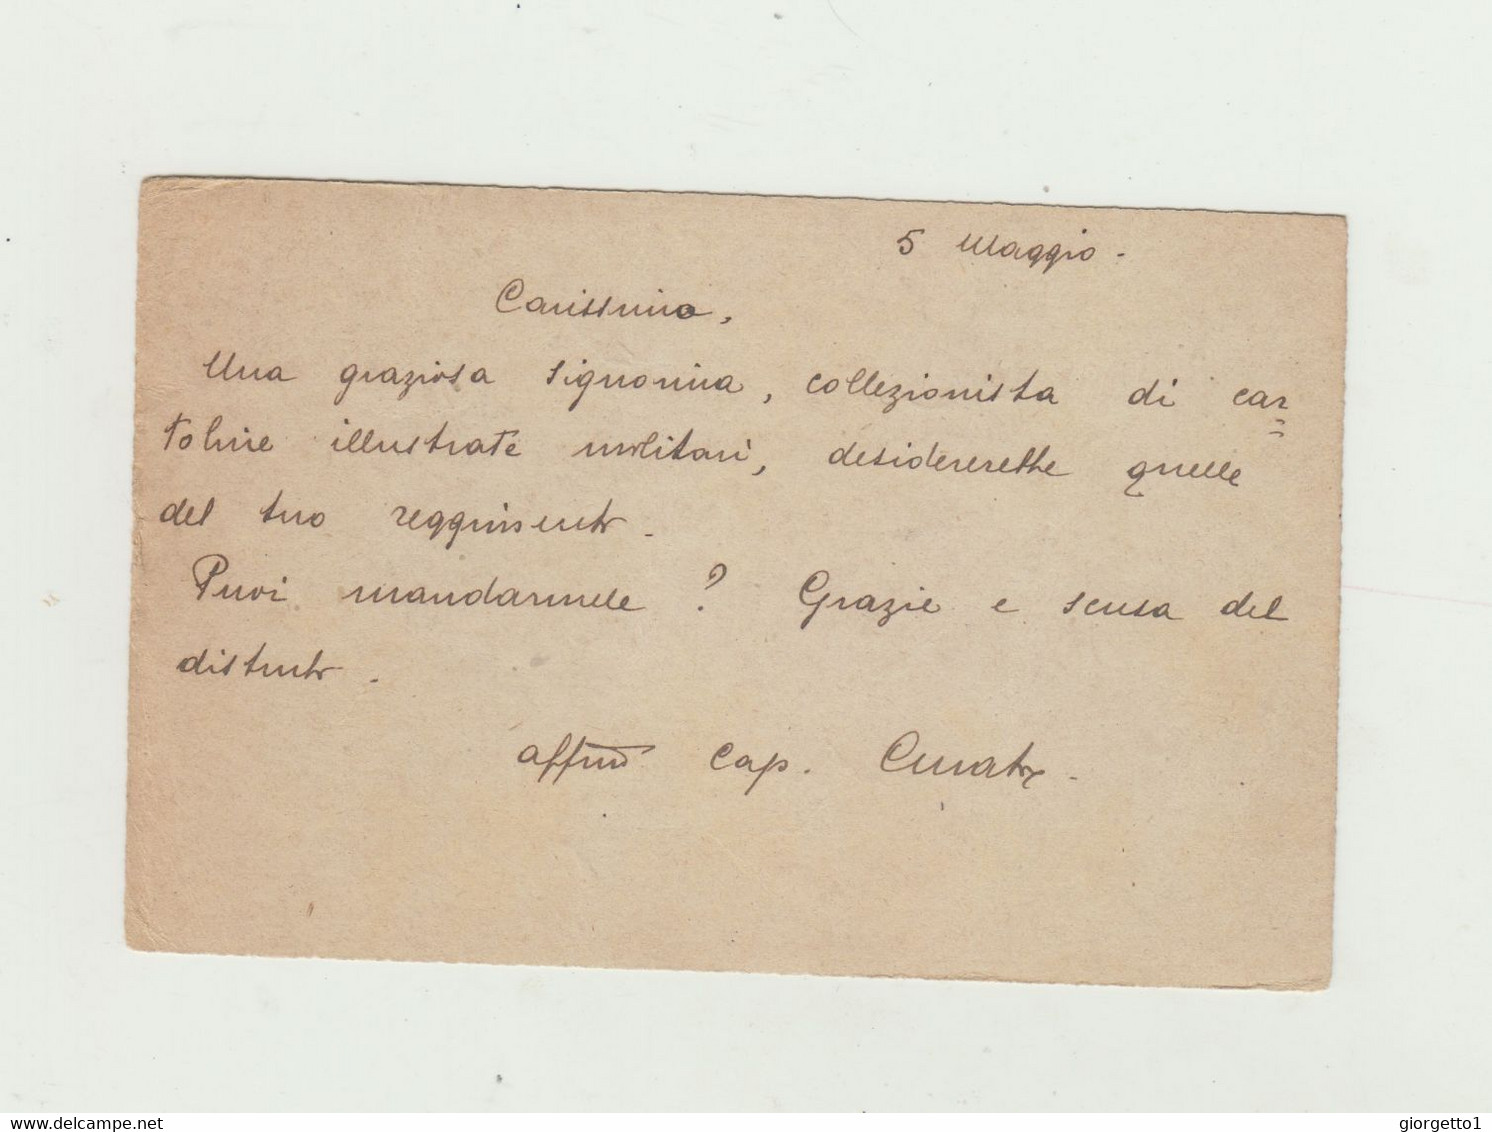 5 Maggio.
Carissimo,
Una graziosa signorina, collezionista di car=
toline illustrate militari, desidererebbe quelle
del tuo reggimento.
Puoi mandarmele? Grazie e scusa del
disturbo.
affmo cap.
www.delcampe.net
giorgetto1